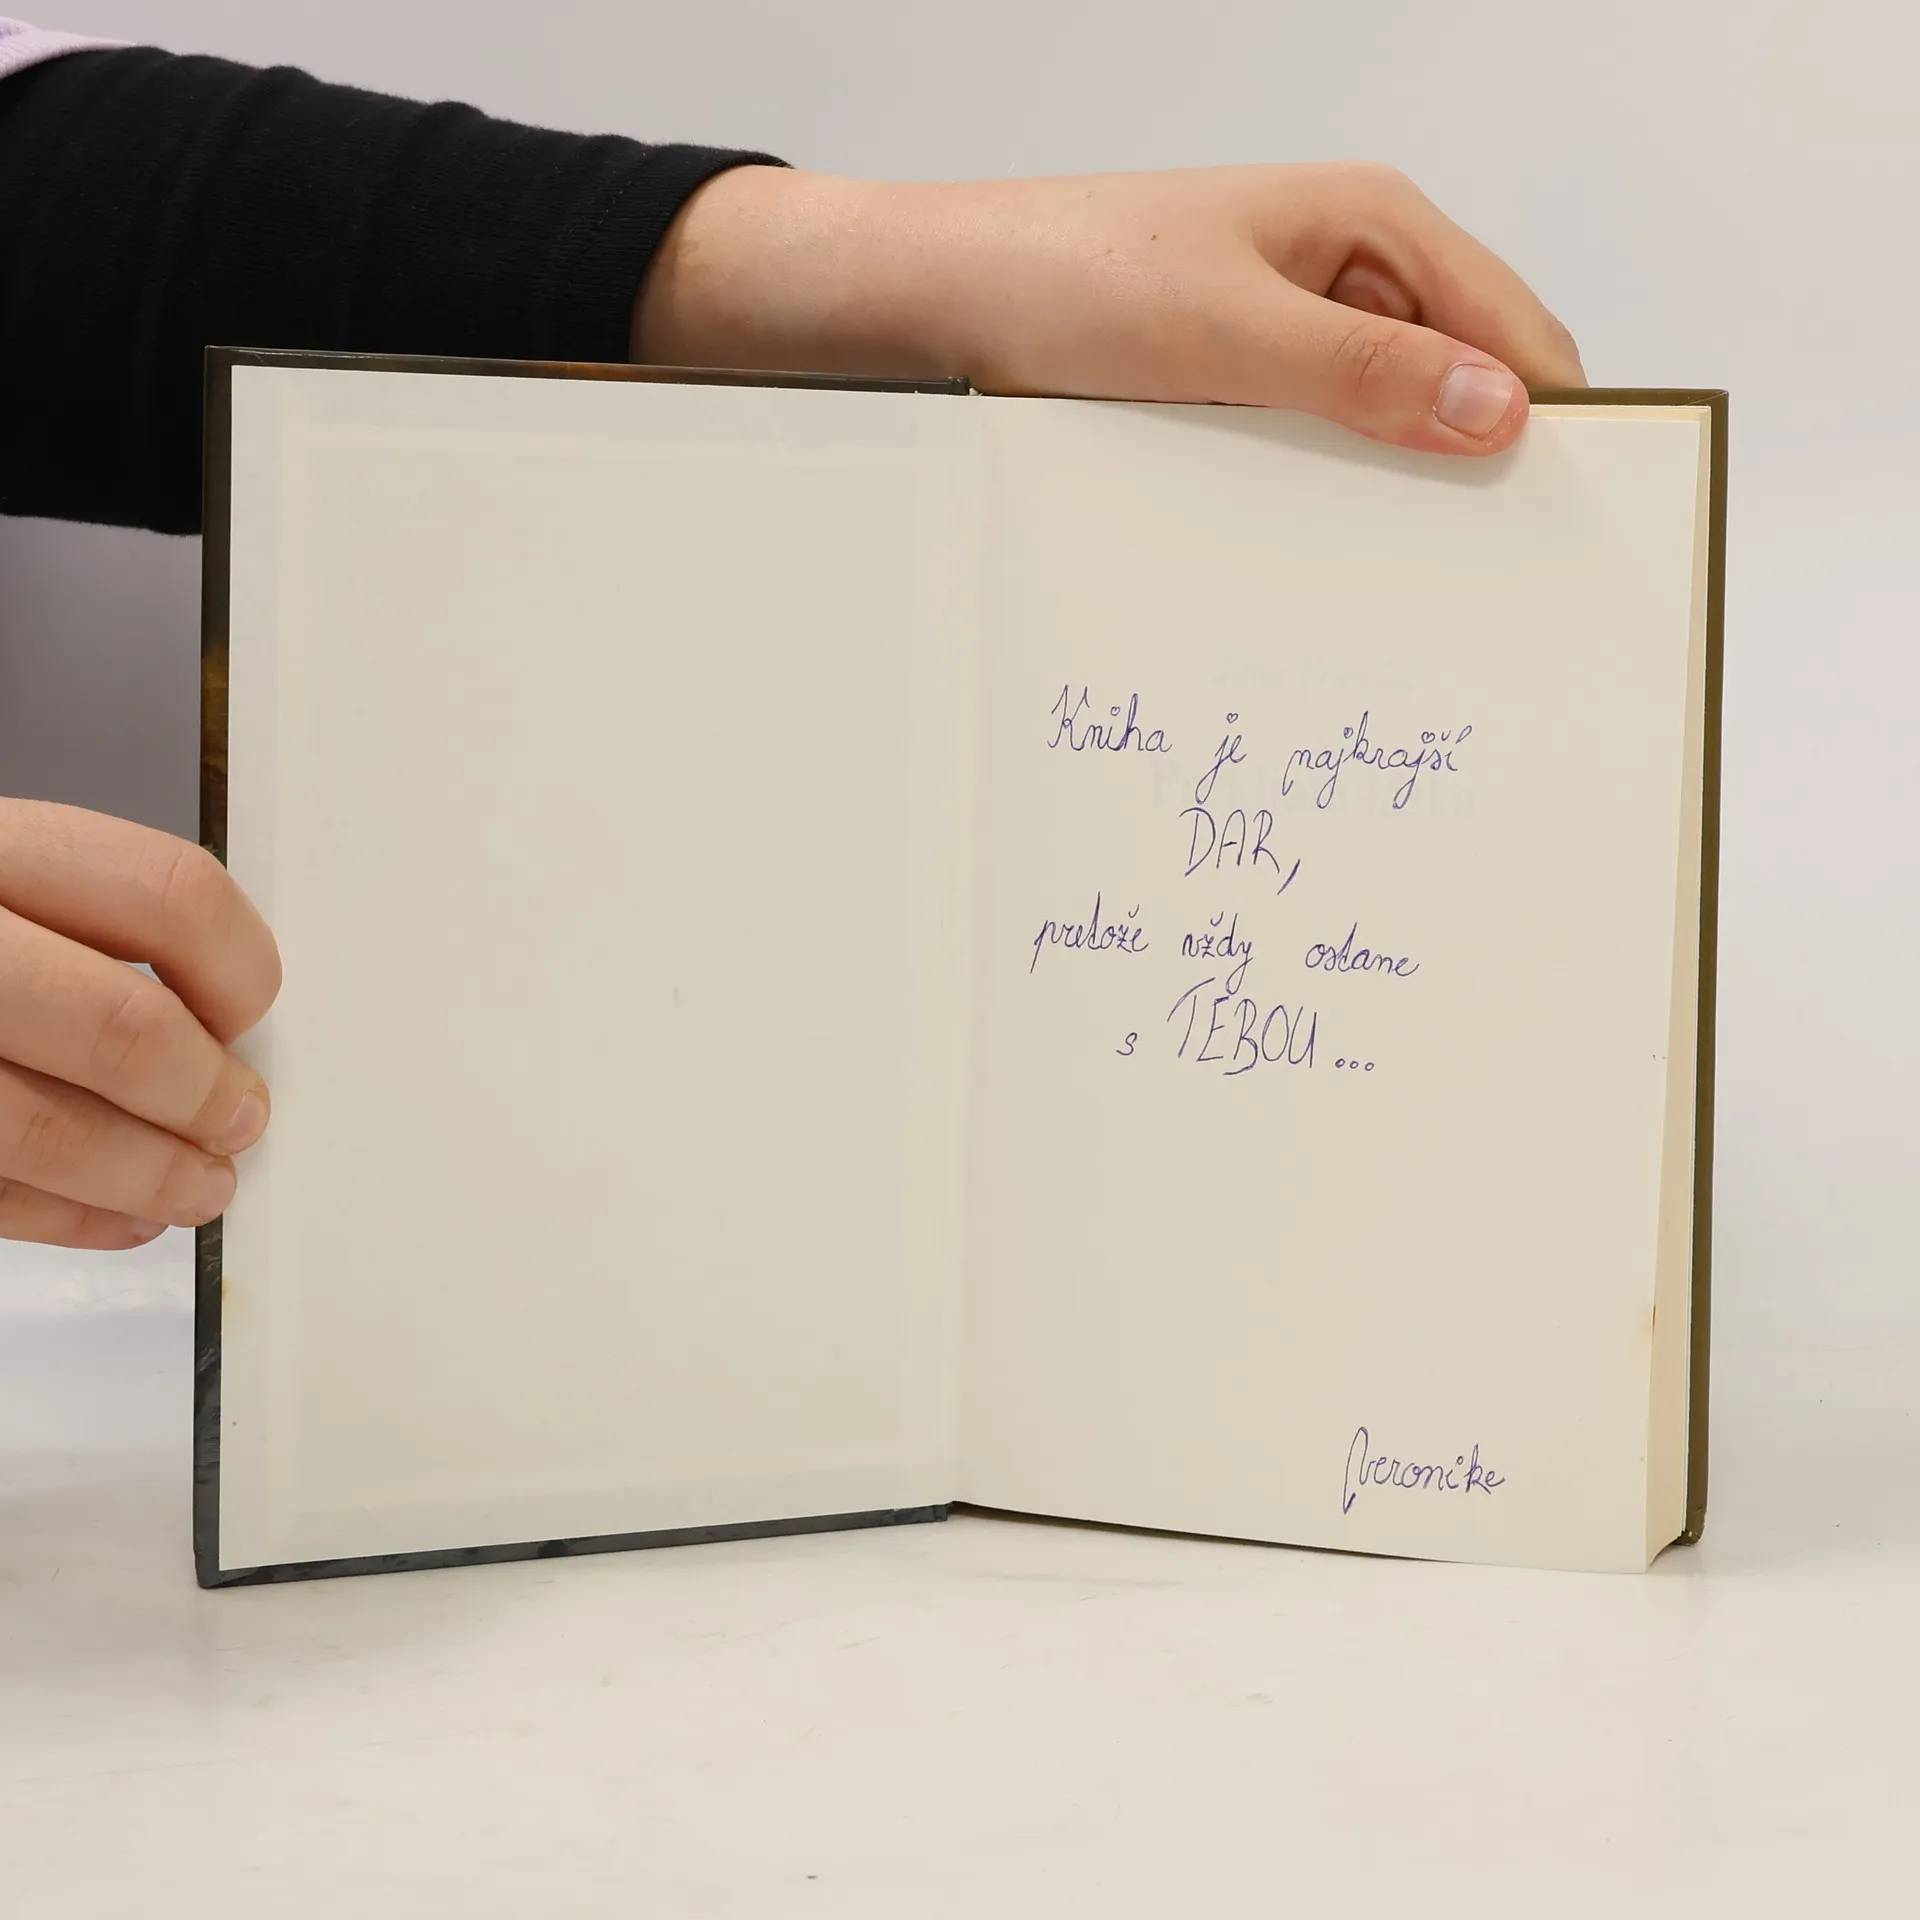 Kniha je najkrajší
DAR,
pretože vždy ostane
s TEBOU...
Veronike